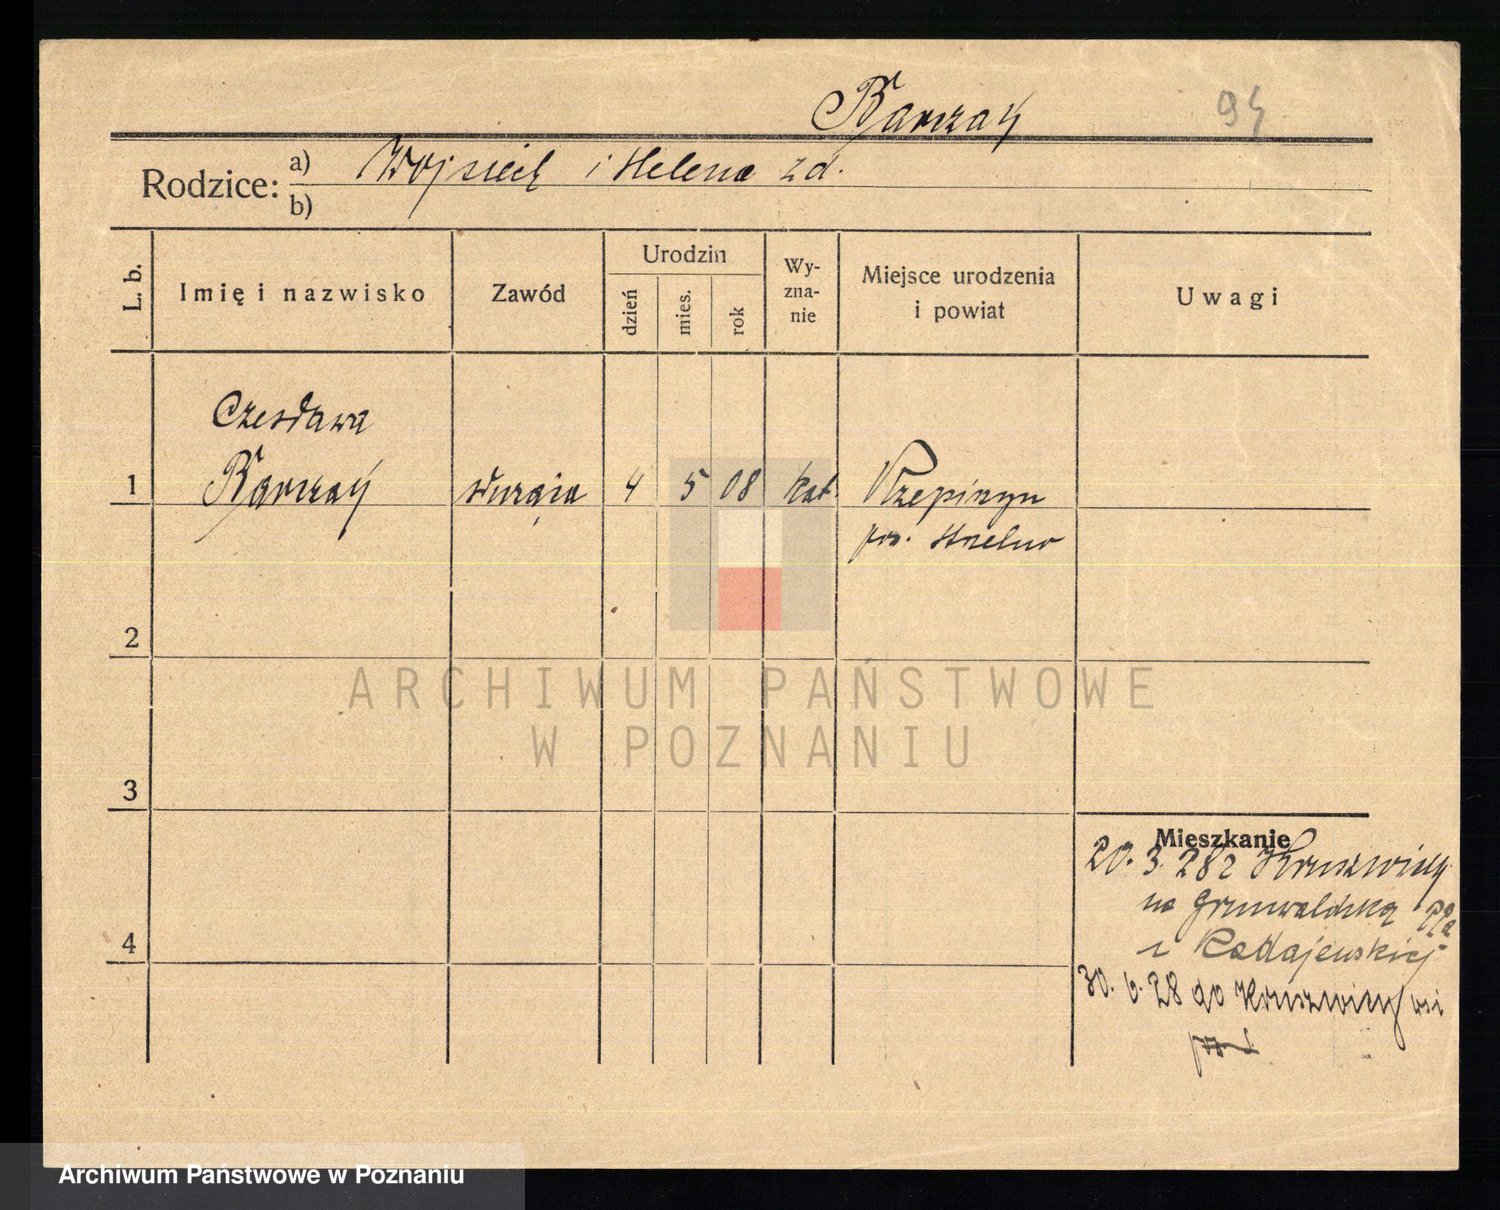 Barczak 94
Rodzice: a) Wojciech i Helena zd.
b)
L. b. Imię i nazwisko Zawód Urodzin dzień mies. rok Wyznanie Miejsce urodzenia i powiat Uwagi
Czesława
1 Barczak służąca 4 5 08 kat.
pow. Strzelno
2
3
4
Mieszkanie
20. 3. 28 z Kruszwicy
na Grunwaldzką 22a
z Radajewskiej
30. 6. 28 do Kruszwicy wsi
ARCHIWUM PAŃSTWOWE
W POZNANIU
Archiwum Państwowe w Poznaniu